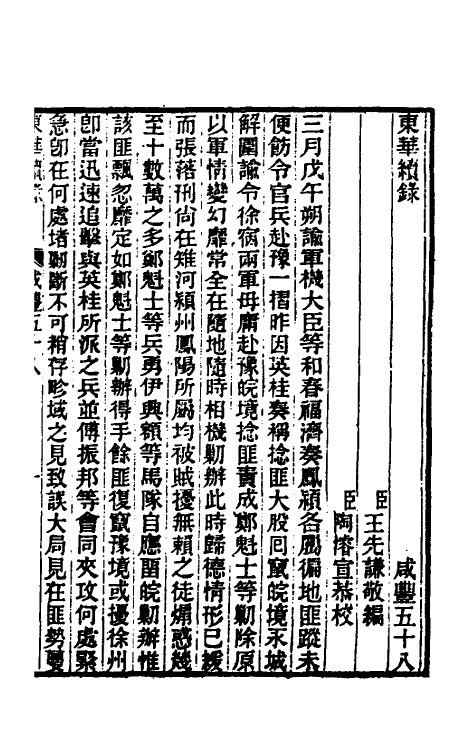 東華續錄
咸豐五十八
臣王先謙敬編
臣陶濬宣恭校
三月戊午朔諭軍機大臣等和春福濟奏鳳潁各屬徧地匪蹤未
便飭令官兵赴豫一摺昨因英桂奏稱捻匪大股回竄皖境永城
解圍諭令徐宿兩軍毋庸赴豫皖境捻匪責成鄭魁士等勦除原
以軍情變幻靡常全在隨地隨時相機勦辦此時歸德情形已緩
而張落刑尚在雉河潁州鳳陽所屬均被賊擾無賴之徒煽惑幾
至十數萬之多鄭魁士等兵勇伊興額等馬隊自應留皖勦辦惟
該匪飄忽靡定如鄭魁士等勦辦得手餘匪復竄豫境或擾徐州
卽當迅速追擊與英桂所派之兵並傅振邦等會同夾攻何處緊
急卽在何處堵勦斷不可稍存畛域之見致誤大局見在匪勢雙
東華續錄
咸豐五十八
一